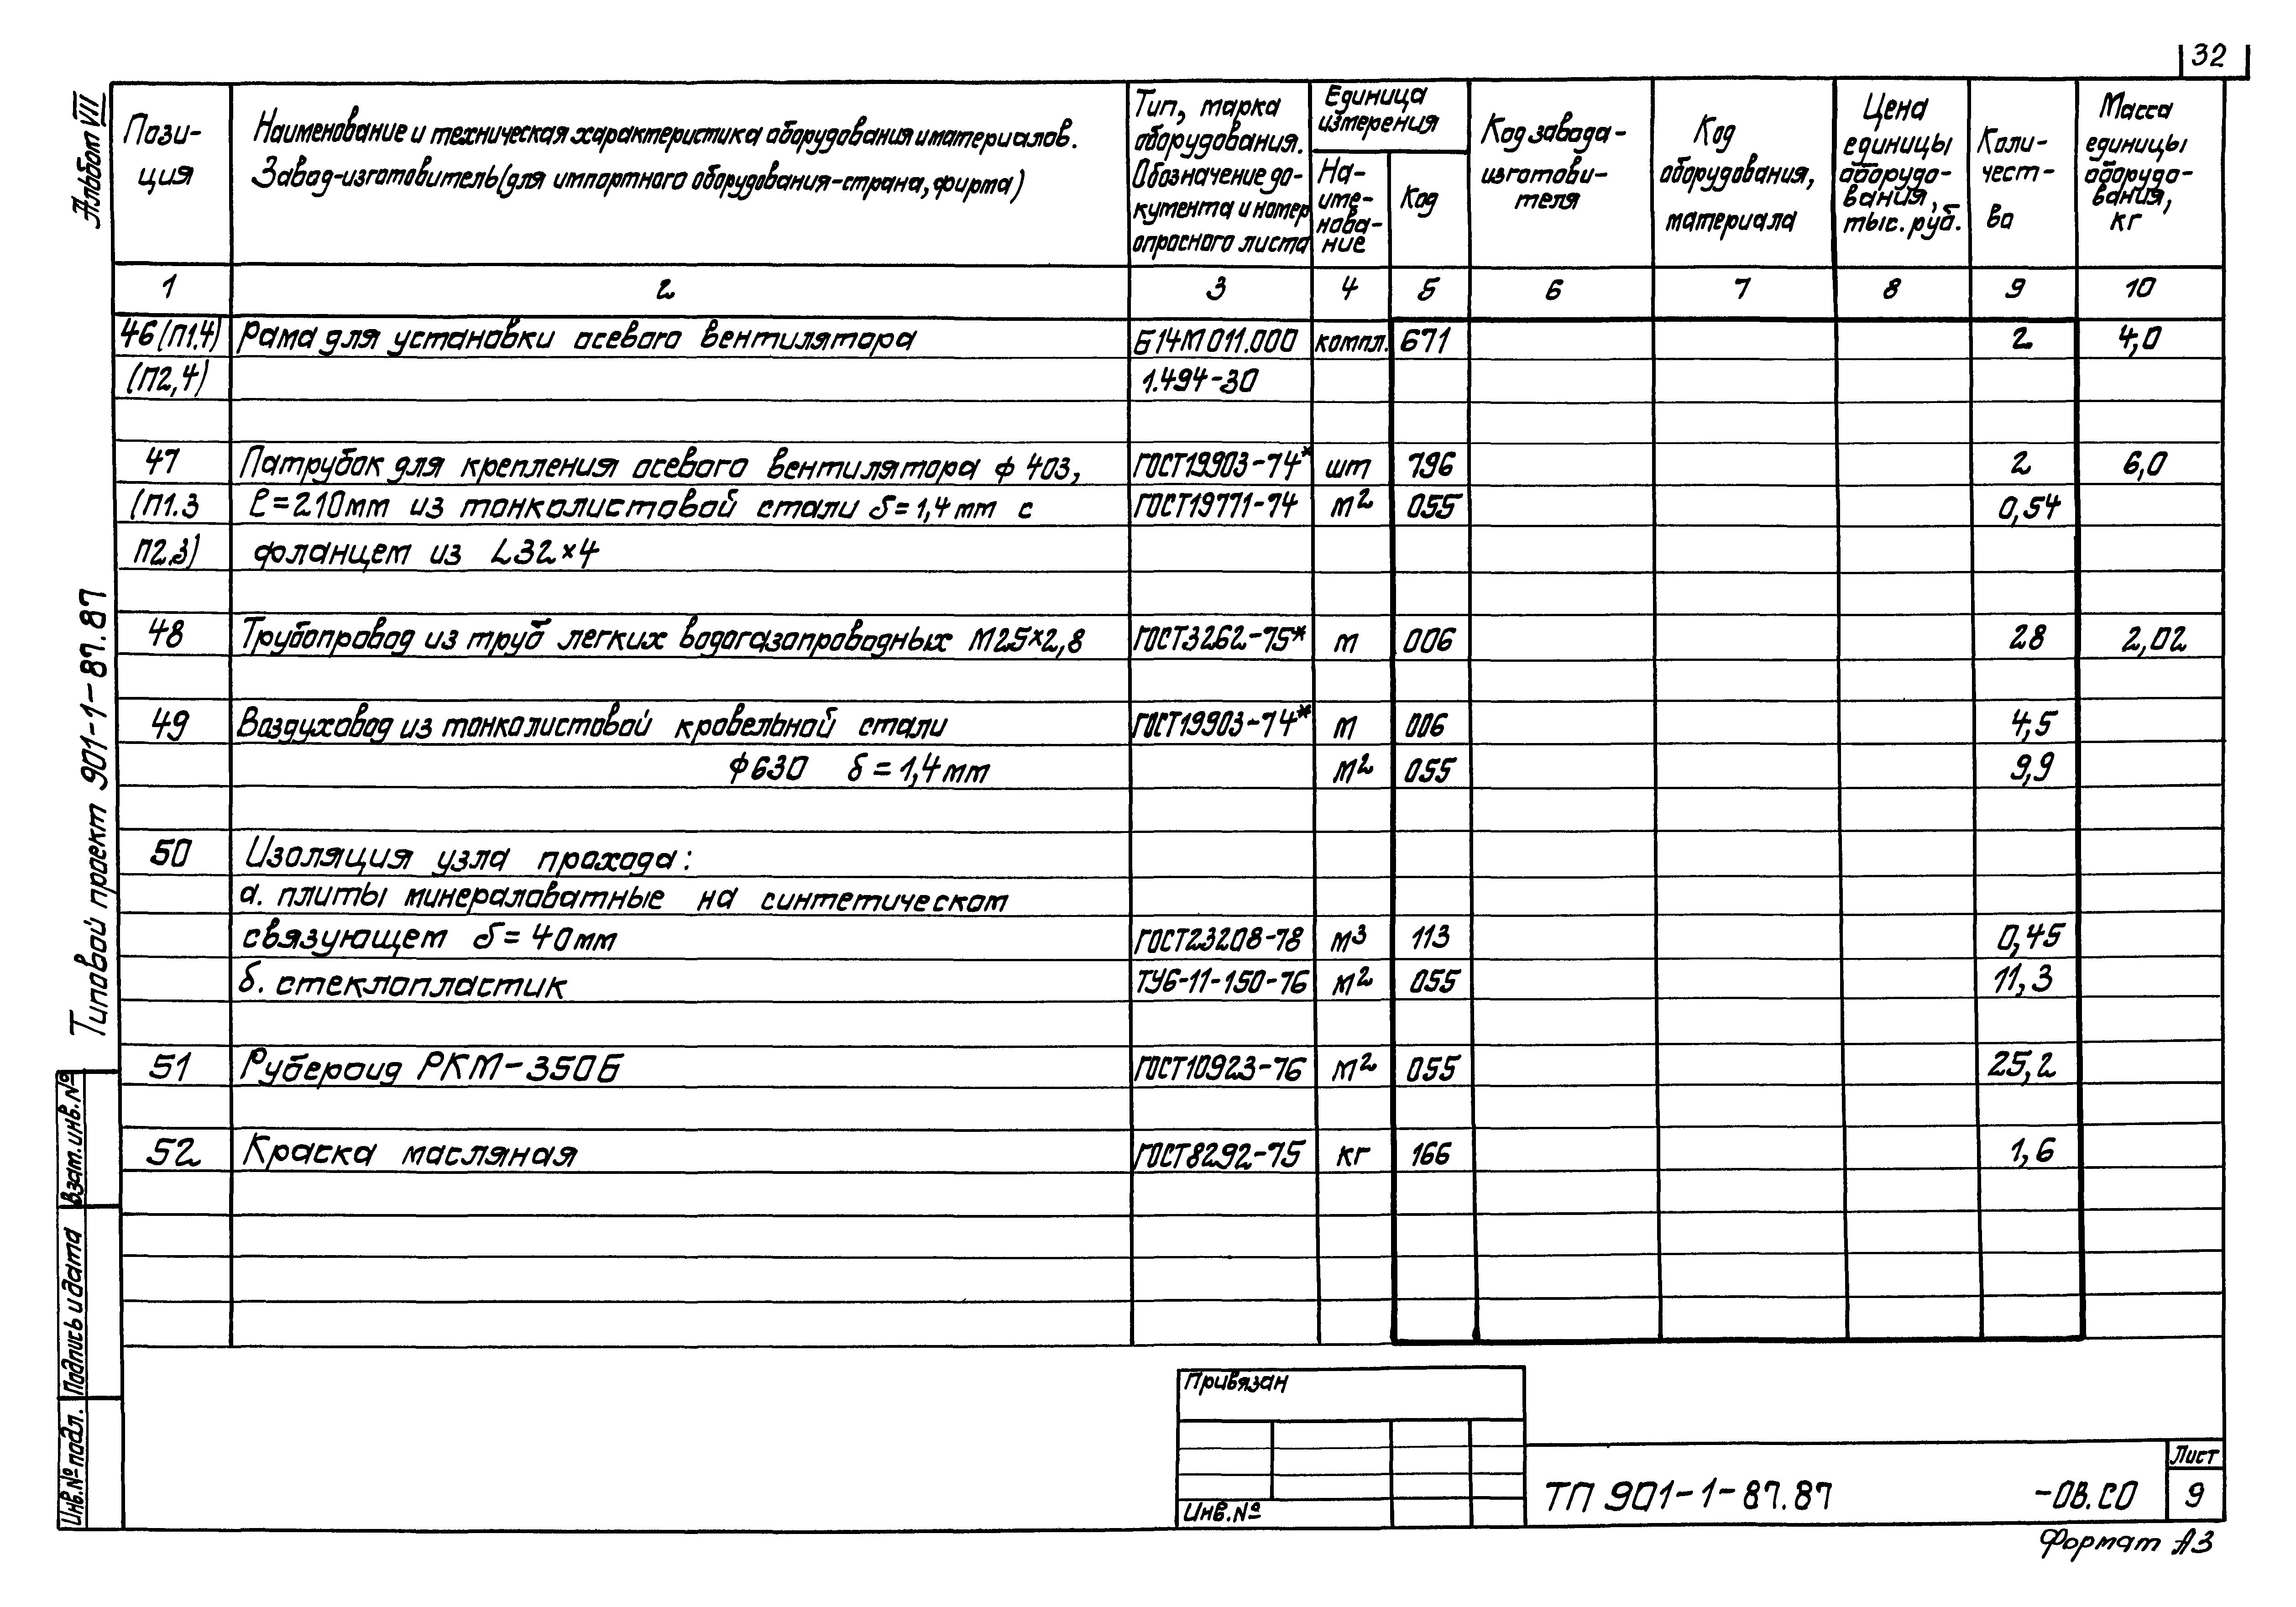 32
Альбом VII
Типовой проект 901-1-87.87
Взам.инв.№
Подпись и дата
Инв.№ подл.
Пози-
ция
Наименование и техническая характеристика оборудования и материалов.
Завод-изготовитель (для импортного оборудования-страна, фирма)
Тип, марка
оборудования.
Обозначение до-
кумента и номер
опросного листа
Единица
измерения
На-
име-
нова-
ние
Код
Код завода-
изготови-
теля
Код
оборудования,
материала
Цена
единицы
оборудо-
вания,
тыс. руб.
Коли-
чест-
во
Масса
единицы
оборудо-
вания,
кг
1 2 3 4 5 6 7 8 9 10
46 (П1.4) Рама для установки осевого вентилятора Б14М011.000 компл. 671 2 4,0
(П2,4) 1.494-30
47 Патрубок для крепления осевого вентилятора ф 403, ГОСТ19903-74* шт 796 2 6,0
(П1.3 ℓ=210мм из тонколистовой стали δ=1,4мм с ГОСТ19771-74 м² 055 0,54
П2.3) фланцем из L32×4
48 Трубопровод из труб легких водогазопроводных М25×2,8 ГОСТ3262-75* м 006 28 2,02
49 Воздуховод из тонколистовой кровельной стали ГОСТ19903-74* м 006 4,5
ф630 δ=1,4мм м² 055 9,9
50 Изоляция узла прохода:
а. плиты минераловатные на синтетическом
связующем δ=40мм ГОСТ23208-78 м³ 113 0,45
б. стеклопластик ТУ6-11-150-76 м² 055 11,3
51 Рубероид РКМ-350Б ГОСТ10923-76 м² 055 25,2
52 Краска масляная ГОСТ8292-75 кг 166 1,6
Привязан
Инв.№
ТП 901-1-87.87 -ОВ.СО
Лист
9
Формат А3